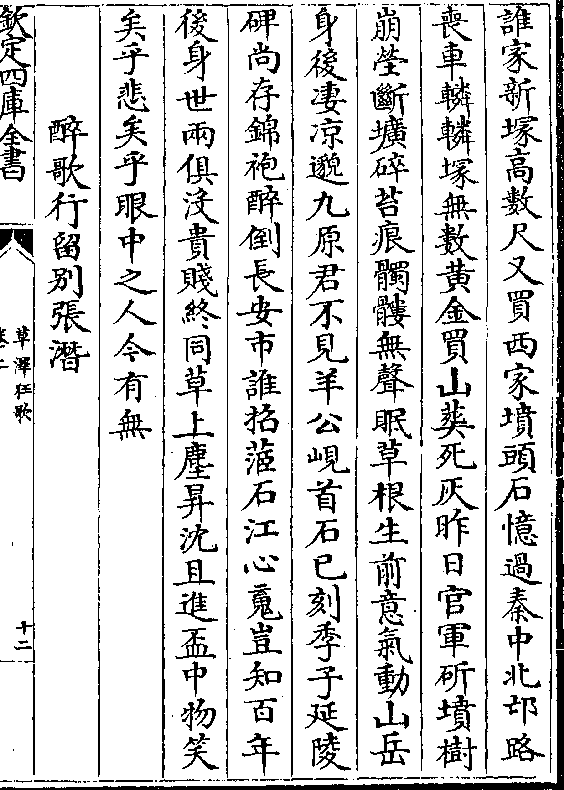 誰家新塚高數尺又買西家墳頭石憶過秦中北邙路
喪車轔轔塚無數黄金買山葬死灰昨日官軍斫墳樹
崩塋斷壙碎苔痕髑髏無聲眠草根生前意氣動山岳
身後凄凉邈九原君不見羊公峴首石已刻季子延陵
碑尚存錦袍醉倒長安市誰招蒞石江心䰟豈知百年
後身世兩俱沒貴賤終同草上塵昇沈且進盃中物笑
矣乎悲矣乎眼中之人今有無
醉歌行留别張潛
欽定四庫全書
草澤狂歌
卷二
十二